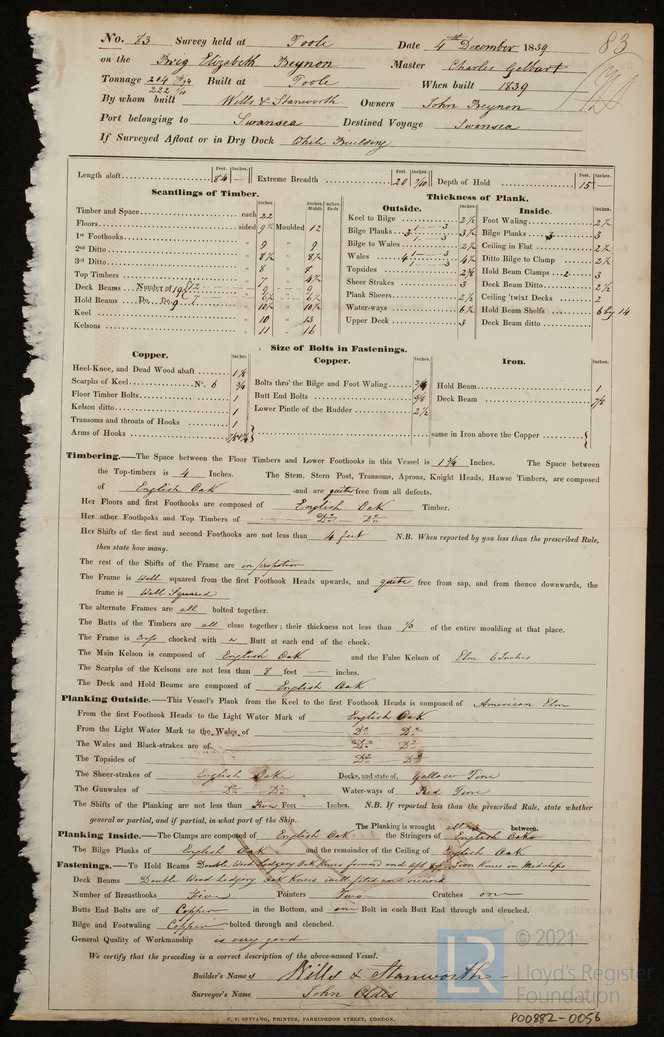 No. 83 Survey held at Poole Date 4th December 1839
83
on the Brig Elizabeth Beynon Master Charles Gelbart
Tonnage 204 222 Built at Poole When built 1839
By whom built Wills & Stanworth Owners John Beynon
Port belonging to Swansea Destined Voyage Swansea
If Surveyed Afloat or in Dry Dock While Building
Length aloft Feet. 84 Inches. — Extreme Breadth Feet 20 Inches. Depth of Hold Feet. 15 Inches. —
Scantlings of Timber.
Inches Inches Middle Inches Ends
Timber and Space each 22
Floors sided 9½ Moulded 12
1st Foothooks „ 9 „ 9
2nd Ditto „ 8½ „ 8½
3rd Ditto „ 8 „ 8
Top Timbers „ 7 „ 4½
Deck Beams Number of 19 „ 9 „ 9
Hold Beams Do. Do. 9
Keel „ 10 „ 13
Kelsons „ 11 „ 16
Thickness of Plank.
Outside. Inches.
Keel to Bilge 2½
Bilge Planks 3½
Bilge to Wales 2½
Wales 4½
Topsides
Sheer Strakes 3
Plank Sheers 2½
Water-ways 6½
Upper Deck 3
Inside. Inches.
Foot Waling 2½
Bilge Planks 3 3
Ceiling in Flat 2½
Ditto Bilge to Clamp 2½
Hold Beam Clamps 2 3
Deck Beam Ditto 2½
Ceiling 'twixt Decks 2
Hold Beam Shelfs 6 by 14
Deck Beam ditto
Size of Bolts in Fastenings.
Copper. Inches
Heel-Knee, and Dead Wood abaft 1⅛
Scarphs of Keel No. 6 ¾
Floor Timber Bolts 1
Kelson ditto 1
Transoms and throats of Hooks 1
Arms of Hooks
Copper. Inches.
Bolts thro' the Bilge and Foot Waling
Butt End Bolts
Lower Pintle of the Rudder 2½
Iron. Inches.
Hold Beam 1
Deck Beam ⅞
same in Iron above the Copper
Timbering.—The Space between the Floor Timbers and Lower Foothooks in this Vessel is 1¾ Inches. The Space between
the Top-timbers is 4 Inches. The Stem, Stern Post, Transoms, Aprons, Knight Heads, Hawse Timbers, are composed
of English Oak and are quite free from all defects.
Her Floors and first Foothooks are composed of English Oak Timber.
Her other Foothooks and Top Timbers of Do. Do.
Her Shifts of the first and second Foothooks are not less than 4 feet N.B. When reported by you less than the prescribed Rule,
then state how many.
The rest of the Shifts of the Frame are in propotion
The Frame is Well squared from the first Foothook Heads upwards, and quite free from sap, and from thence downwards, the
frame is Well Squared
The alternate Frames are all bolted together.
The Butts of the Timbers are all close together; their thickness not less than ⅓ of the entire moulding at that place.
The Frame is chocked with a Butt at each end of the chock.
The Main Kelson is composed of English Oak and the False Kelson of Elm 6 Inches
The Scarphs of the Kelsons are not less than 8 feet — inches.
The Deck and Hold Beams are composed of English Oak
Planking Outside.—This Vessel's Plank from the Keel to the first Foothook Heads is composed of American Elm
From the first Foothook Heads to the Light Water Mark of English Oak
From the Light Water Mark to the Wales of Do. Do.
The Wales and Black-strakes are of Do. Do.
The Topsides of Do. Do.
The Sheer-strakes of English Oake Decks, and state of, Yellow Pine
The Gunwales of Do. Do. Water-ways of Red Pine
The Shifts of the Planking are not less than Five Feet Inches. N.B. If reported less than the prescribed Rule, state whether
general or partial, and if partial, in what part of the Ship. The Planking is wrought between.
Planking Inside.—The Clamps are composed of English Oak the Stringers of English Oak
The Bilge Planks of English Oak and the remainder of the Ceiling of English Oak
Fastenings.—To Hold Beams Double Wood Lodging Oak Knees forward and aft Iron Knees in Midships
Deck Beams Double Wood Lodging Oak Knees well fited and secured
Number of Breasthooks Five Pointers Two Crutches one
Butts End Bolts are of Copper in the Bottom, and one Bolt in each Butt End through and clenched.
Bilge and Footwaling Copper bolted through and clenched.
General Quality of Workmanship is very good
We certify that the preceding is a correct description of the above-named Vessel.
Builder's Name Wills & Stanworth
Surveyor's Name John Oldis
C. F. SEYFANG, PRINTER, FARRINGDON STREET, LONDON.
LR
© 2021
Lloyd's Register
Foundation
P00882-0056